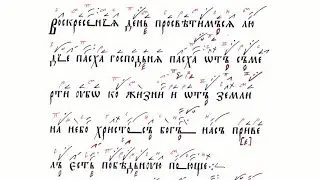 Воскресения день просвѣтимъся лю
дие пасха господьня пасха ѿтъ съме
рти ѹбѡ ко жизни и ѿтъ земли
на небо христосъ богъ насъ приве
лъ есть побѣдьную поюще